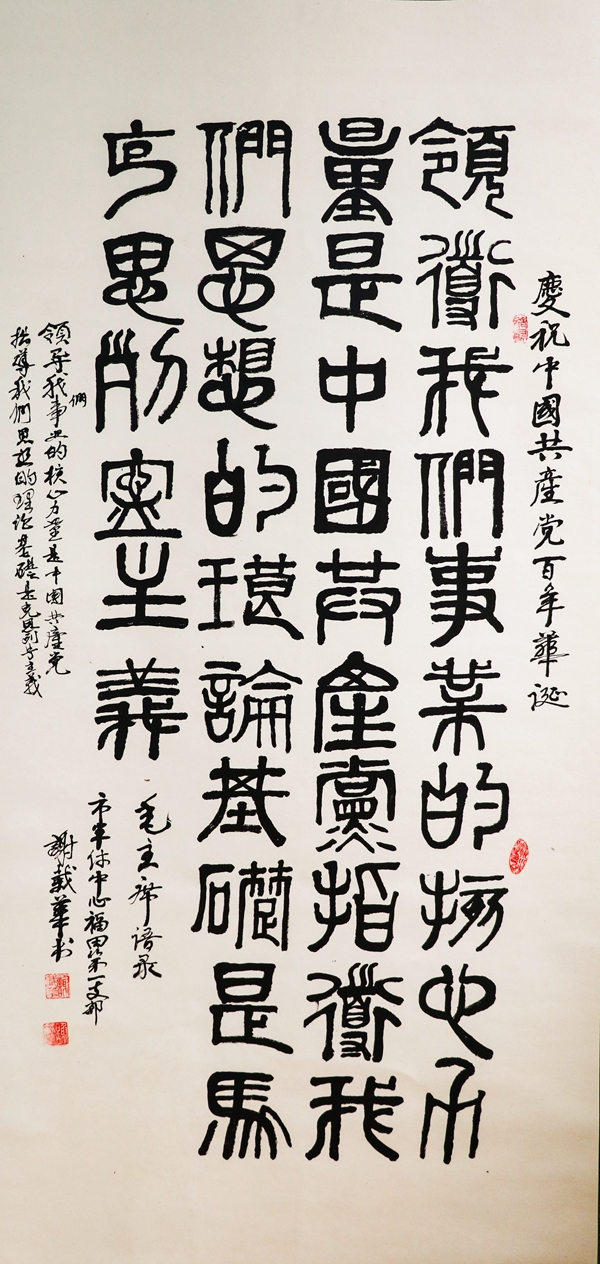 慶祝中國共産党百年華诞
領導我們事業的核心力
量是中國共產黨指導我
們思想的理論基礎是馬
克思列寧主義
毛主席语录
市军休中心福田第一支部
謝载華书
領导我們事业的核心力量是中國共產党
指導我們思想的理论基礎是克思列宁主義